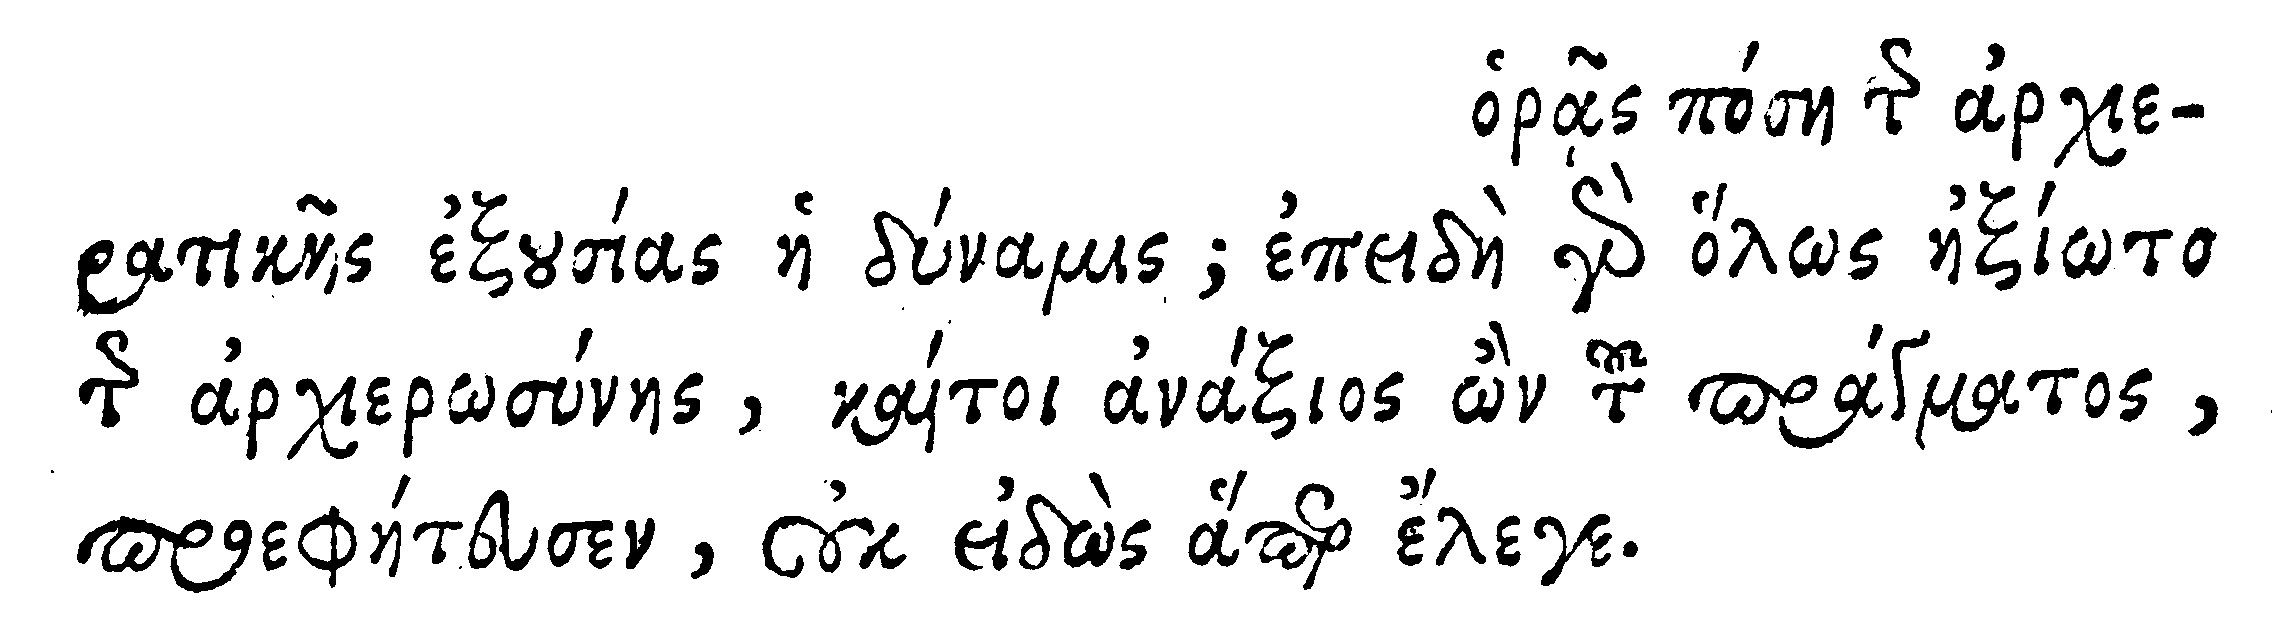 ὁρᾷς πόση τῆς ἀρχιε-
ρατικῆς ἐξουσίας ἡ δύναμις; ἐπειδὴ γὰρ ὅλως ἠξίωτο
τῆς ἀρχιερωσύνης, καίτοι ἀνάξιος ὢν τοῦ πράγματος,
προεφήτευσεν, οὐκ εἰδὼς ἅπερ ἔλεγε.